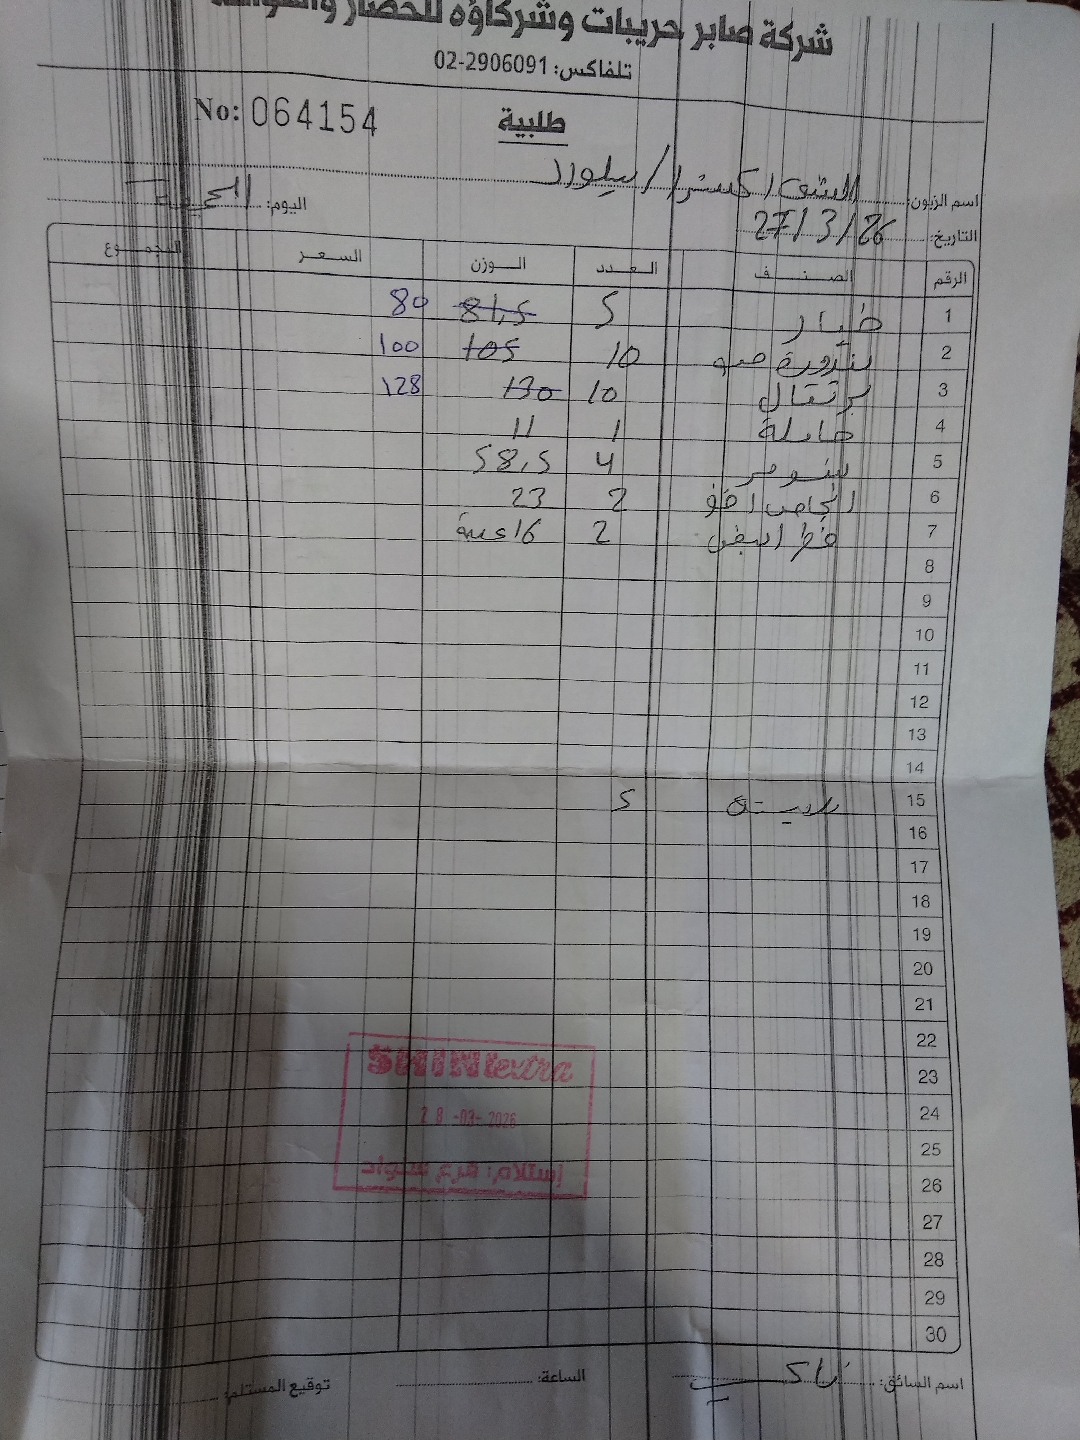 شركة صابر حريبات وشركاؤه للخضار والفواكه
تلفاكس: 02-2906091
No: 064154
طلبية
اسم الزبون: الشني اكسترا /
اليوم: الجمعة
التاريخ: 27/3/26
الرقم الصنف العدد الوزن السعر المجموع
1 خيار 5 81,5 80
2 بندورة 10 105 100
3 برتقال 10 130 128
4 1 11
5 4 58,5
6 2 23
7 فطر ابيض 2 16
8
9
10
11
12
13
14
15 5
16
17
18
19
20
21
22
23
24
25
26
27
28
29
30
SHINI extra
28-03-2026
إستلام: فرع
اسم السائق:
الساعة:
توقيع المستلم: